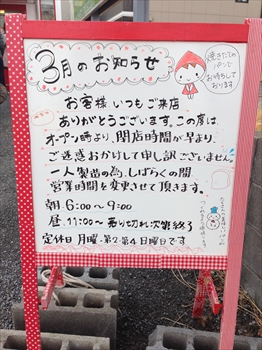 3月のお知らせ
焼きたての
パンで
お待ちして
おります
お客様いつもご来店
ありがとうございます。この度は、
オープン時より、閉店時間が早まり、
ご迷惑おかけして申し訳ございません。
一人製造の為、しばらくの間
営業時間を変更させて頂きます。
朝 6:00〜9:00
昼 11:00〜売り切れ次第終了
定休日 月曜・第2・第4日曜日です